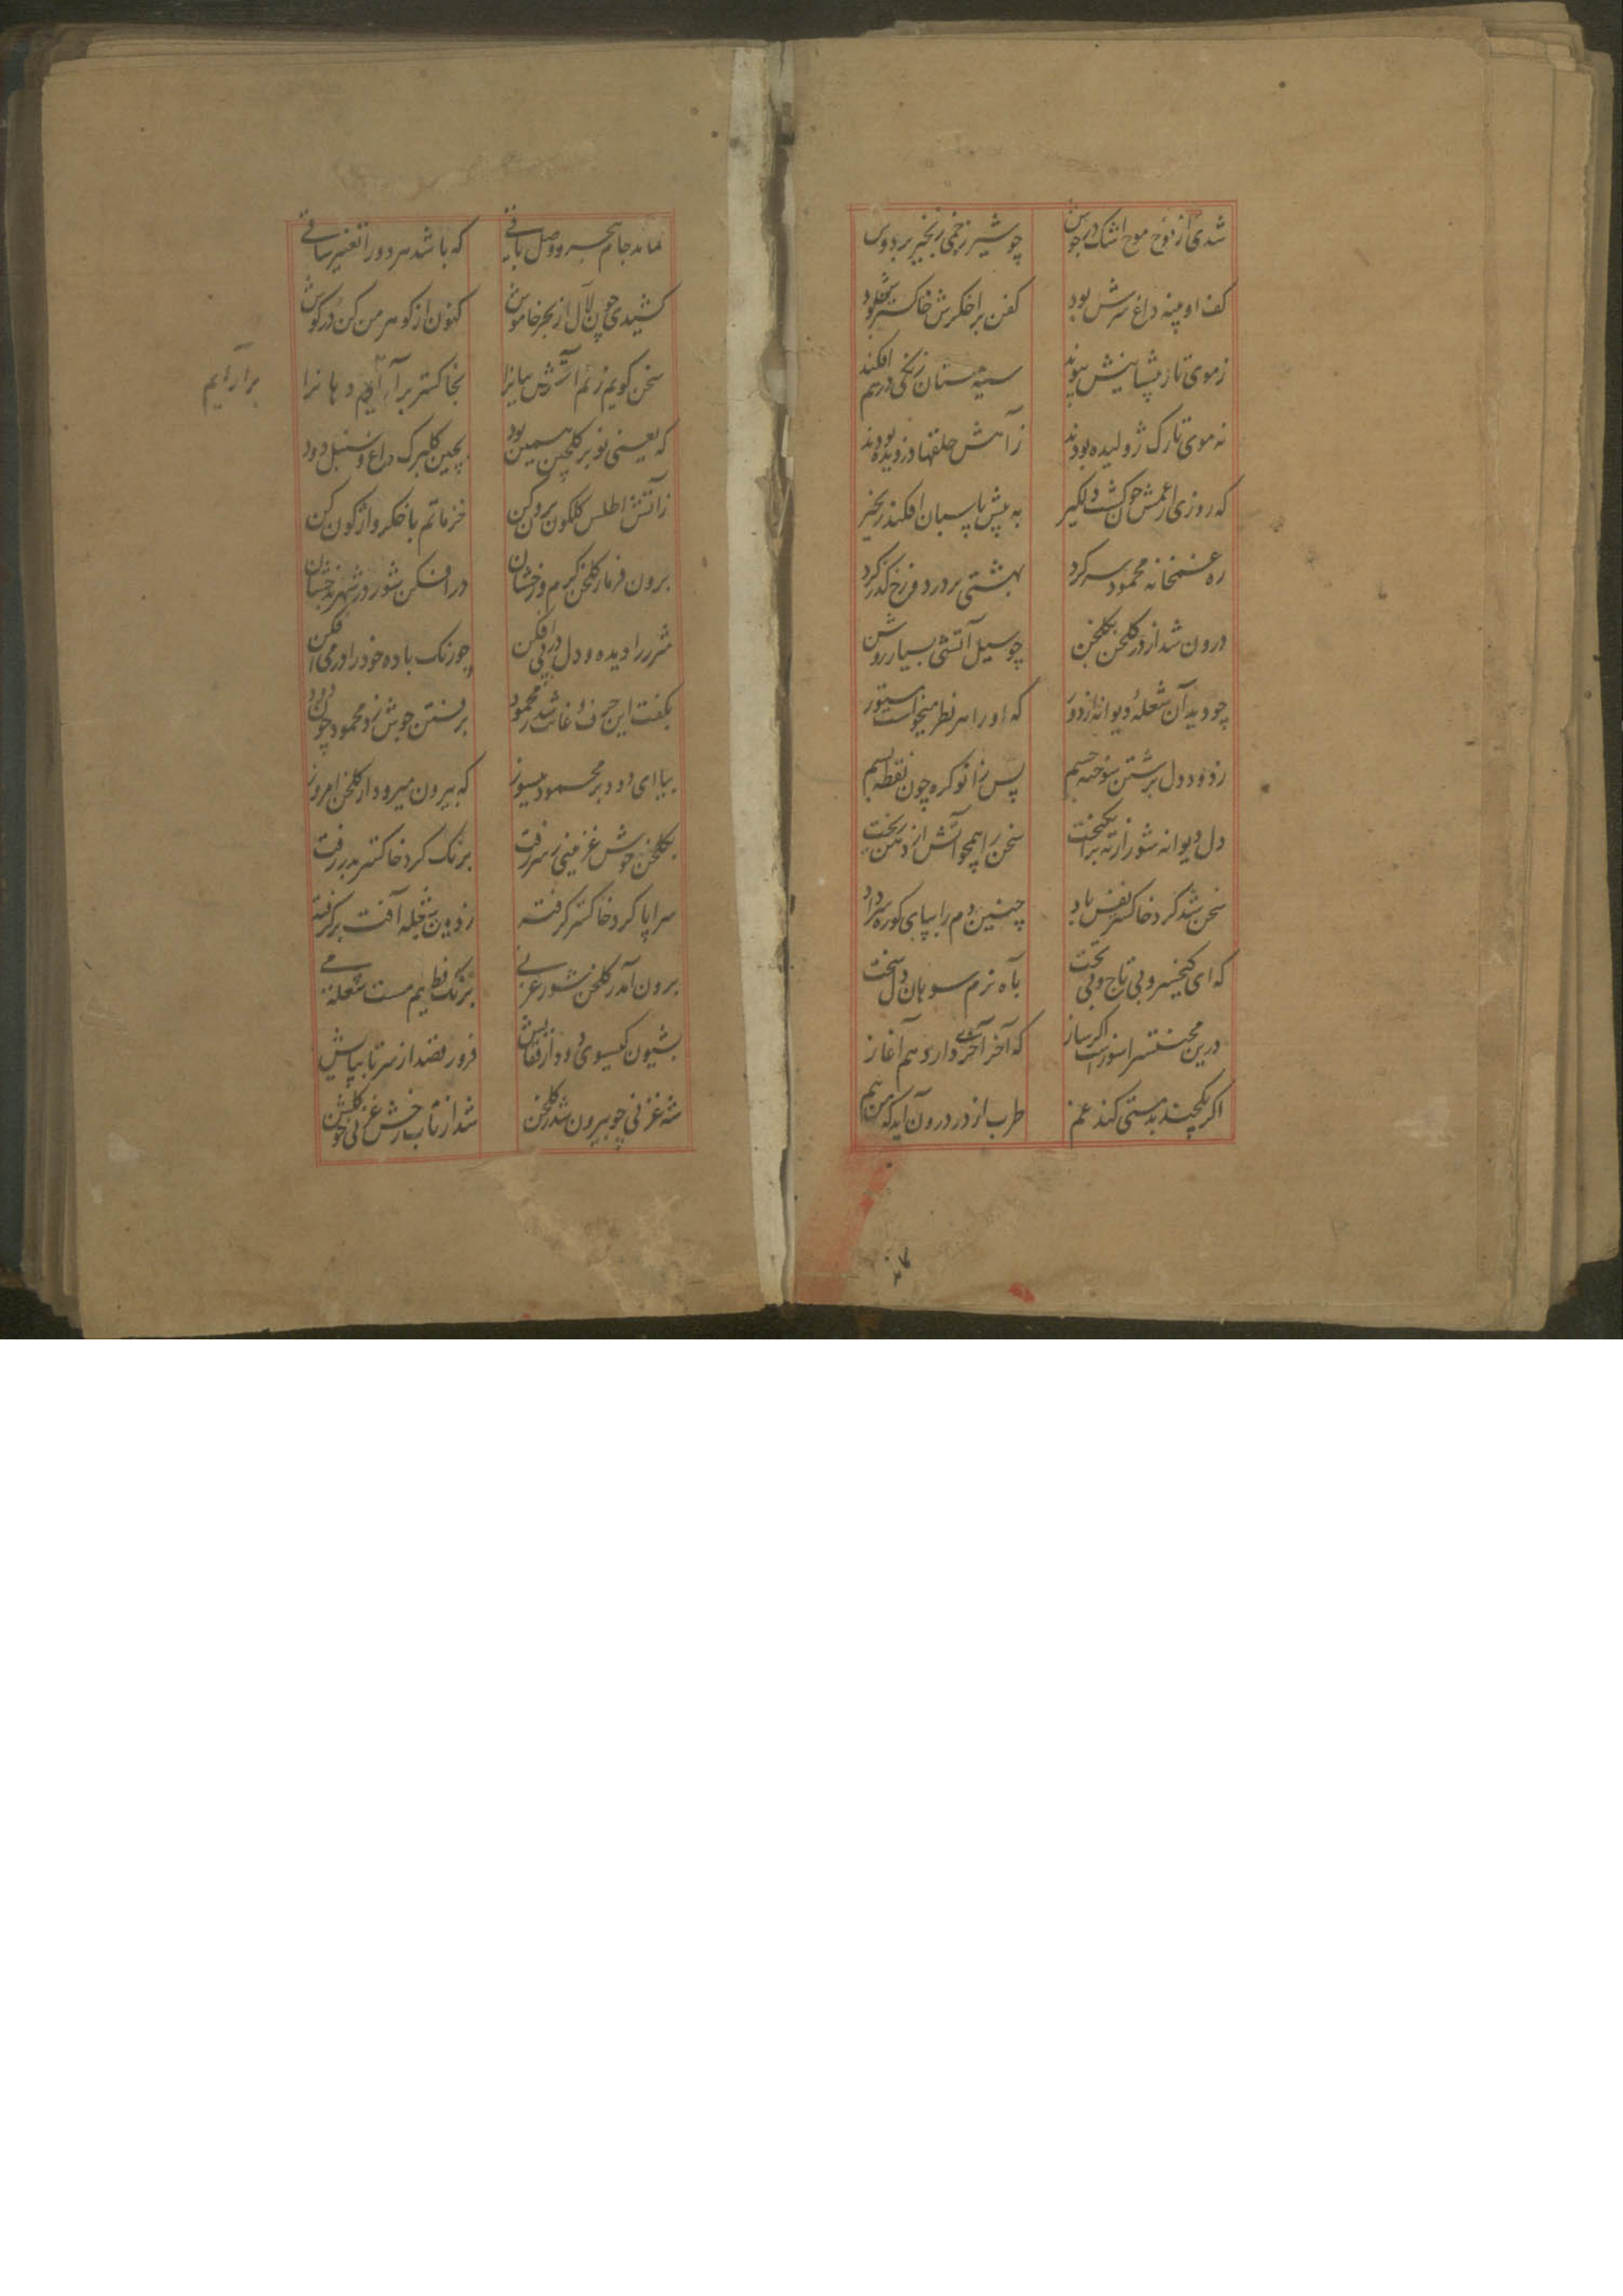 شدی از موج موج اشک در جوش
چو شیر زخمی زنجیر بر دوش
کف او پنبه داغ سرش بود
کفن بر اخکرش خاکسترش بود
ز موی تار پیشانیش پیوند
سیه مستان زنکی درهم افکند
نه موی تارک ژولیده بودند
ز آهش حلقها دزدیده بودند
که روزی از غمش چون کشت دلکیر
به پیش پاسبان افکند زنجیر
ره غمخانه محمود سر کرد
بهشتی بر در دوزخ کذر کرد
درون شد از در کلخن بکلخن
چو سیل آتشی بسیار روشن
چو دید آن شعله دیوانه از دور
که او را سر نظر میخواست مستور
ز دود دل برشتن سوخته جسم
پس زانو کره چون نقطه بسم
دل دیوانه شور از ته برانکیخت
سخن را همچو آتش از دهن ریخت
سخن شد کرد خاکستر نفس باد
چنین دم را بپای کوره سر داد
که ای کیخسرو بی تاج و بی تخت
بآه نرم سوهان دل سخت
درین محنت سرا سوز است اکر ساز
که آخر آخری دارد هم آغاز
اکر یکچند بدمستی کند غم
طرب از در درون آید که من هم
نماند جام هجر و وصل باقی
که باشد هر دور را تغییر ساقی
کشیدی چون لآل از بحر خاموش
کنون از کوهر من کن در کوش
سخن کویم زنم آتش بیانرا
بخاکستر بر آرایم دهانرا
برآرایم
که یعنی نوبر کلچین همین بود
بچین کلبرک داغ و سنبل دود
ز آتش اطلس کلکون برون کن
خز ماتم باخکر واژکون کن
برون فرما ز کلخن کرم و رخشان
در افکن شور در شهر بدخشان
شرر را دیده و دل در پی افکن
چو رنک باده خود را در می افکن
بکفت این حرف و غائب شد ز محمود
برفتن جوش زد محمود چون دود
بیا ای دود بر محمود میسوز
که بیرون میرود از کلخن امروز
بکلخن جوش غزنینی ز سر رفت
برنک کرد خاکستر بدر رفت
سراپا کرد خاکستر کرفته
ز دود شعله آفت برکرفته
برون آمد ز کلخن شور عریانی
بشیون کیسوی دود از قفایش
فرو رقصد از سر تا بپایش
شه غزنی چو بیرون شد ز کلخن
شد از تاب رخش غزنی چو کلشن
۴۷